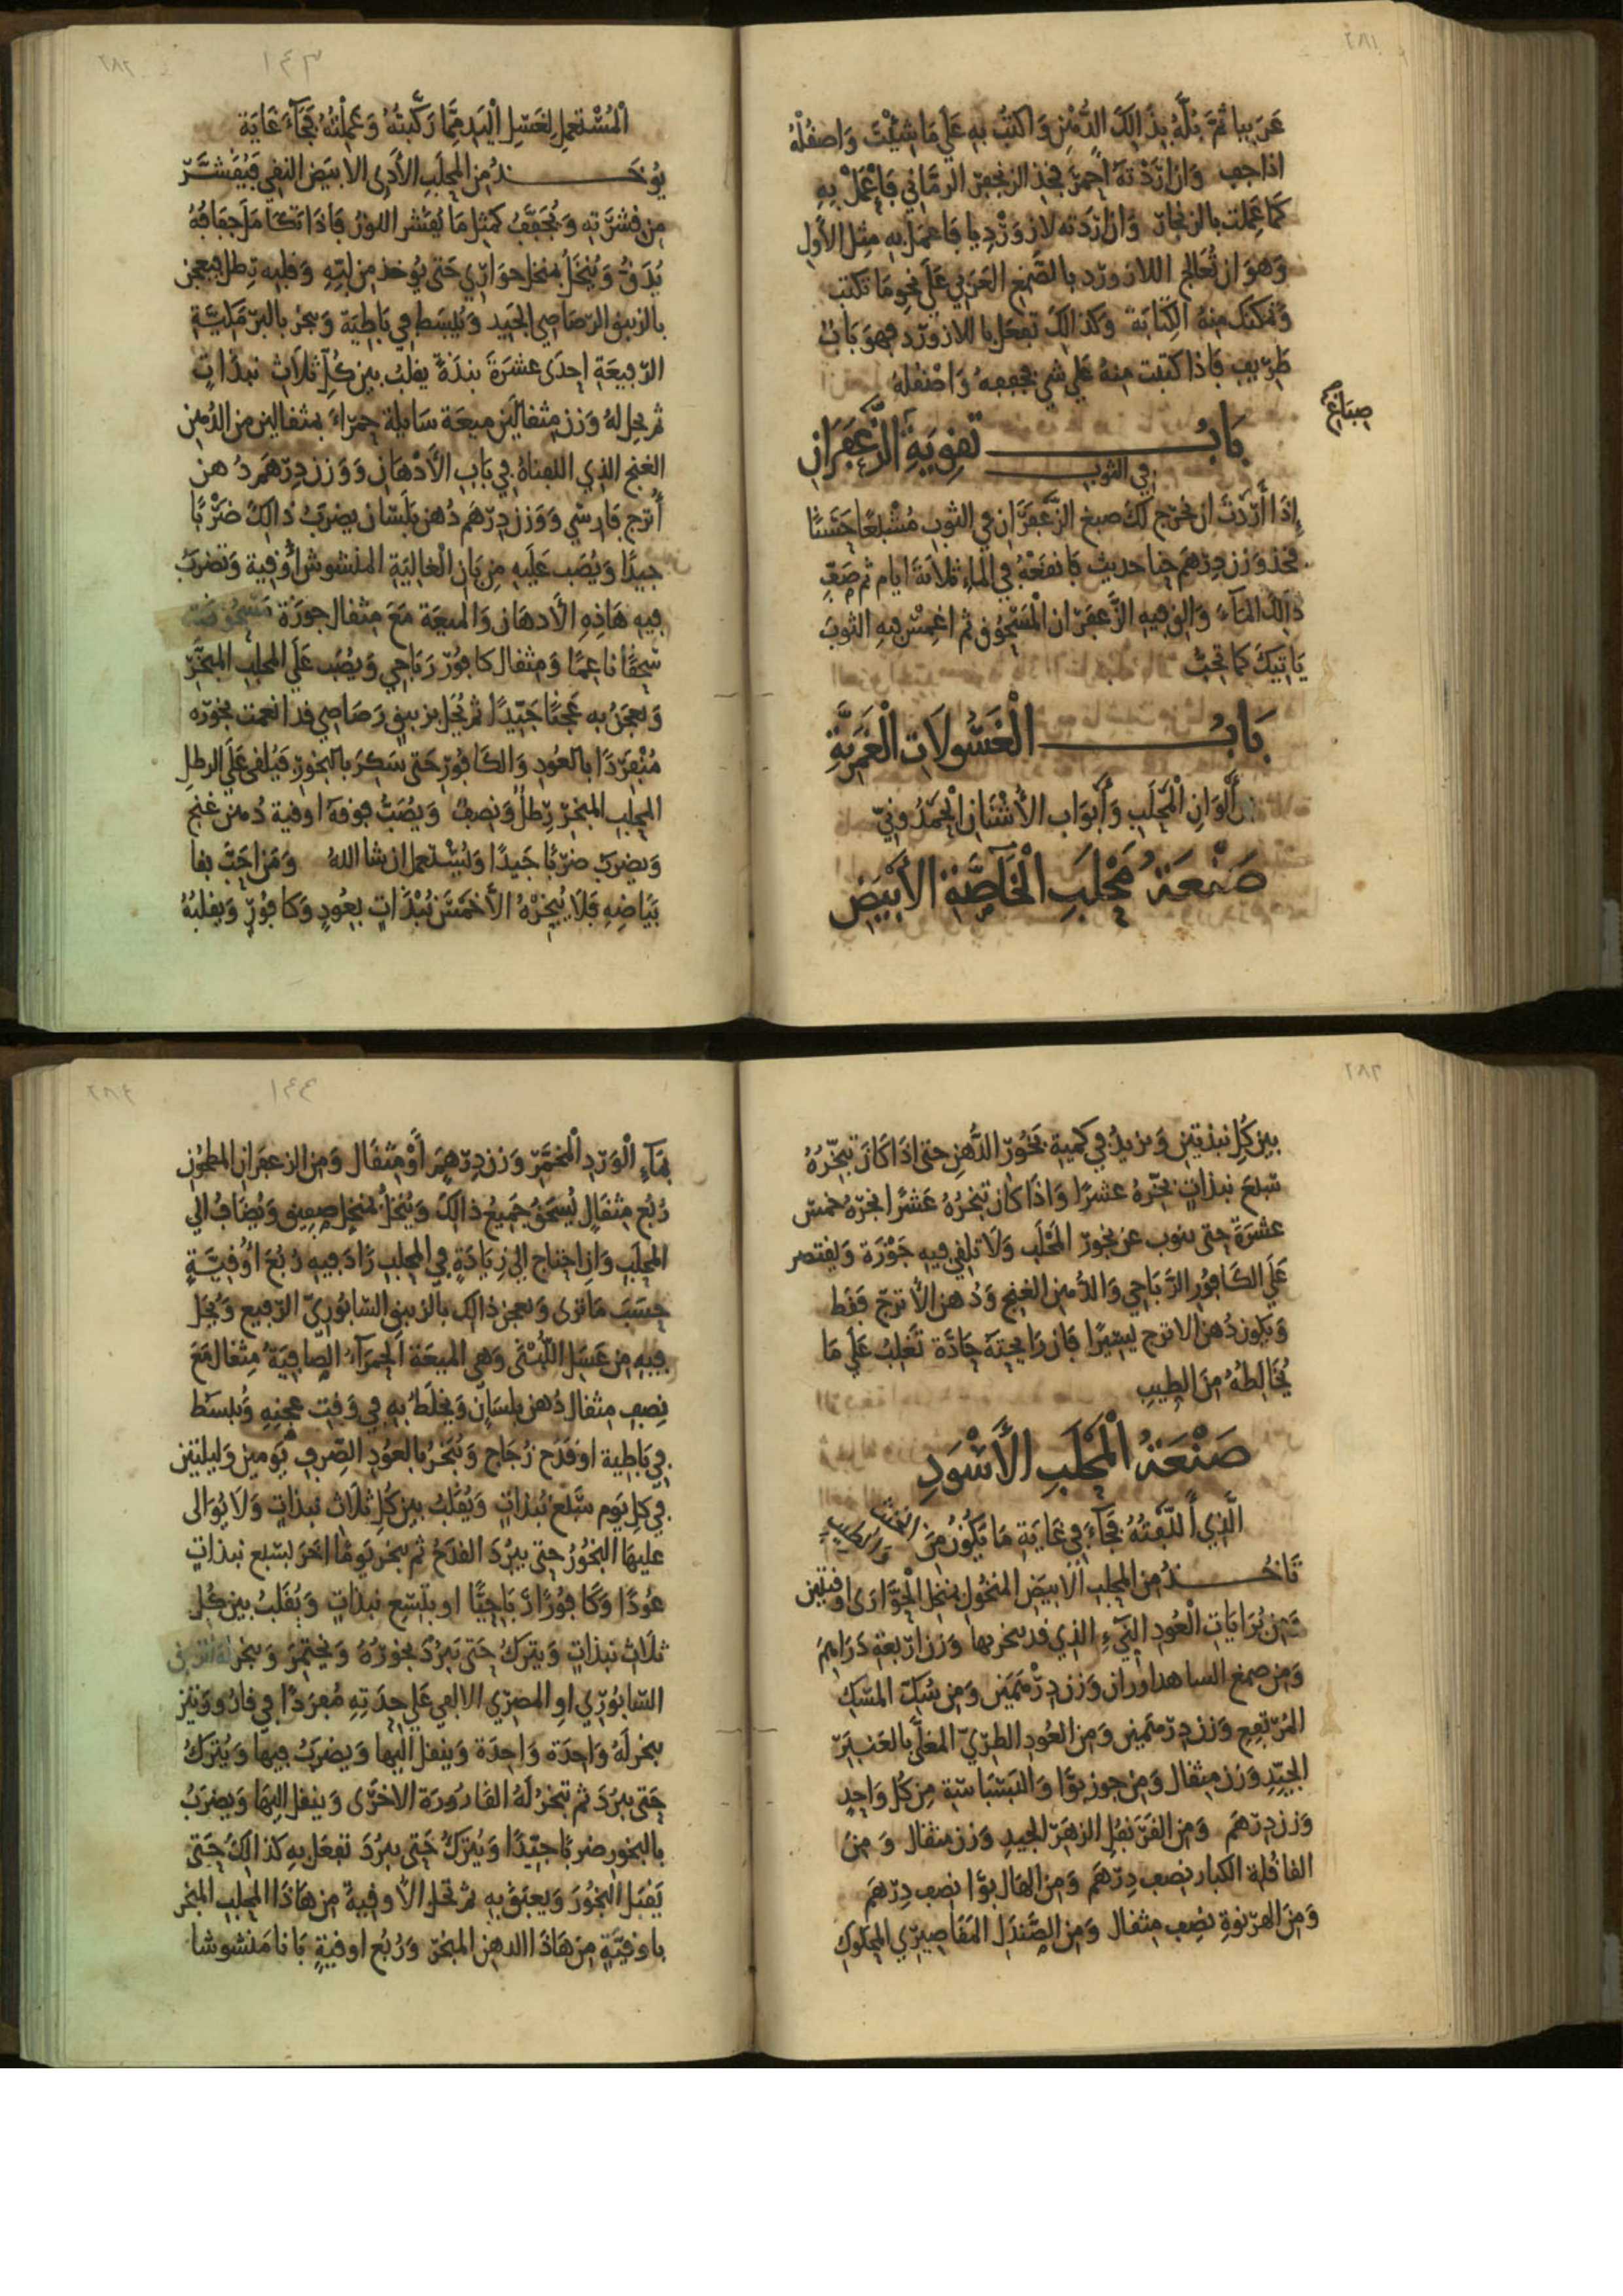 ٢٨١
عَرَبيا ثمَّ بُلَّهُ بِذَالِكَ الدُّهْنِ وَاكتُبْ بِهِ عَلَى مَا شِئْتَ وَاصقُلْهُ
اذا جف وَان ارَدْتهُ احْمَرَ فخذ الزنجفر الرمَّاني فَاعْمَلْ بِهِ
كمَا عَمِلت بالزنجار وَان اردته لازوَرْدِيا فَاعمَلْ بِهِ مِثل الأول
وَهوَ ان تُعَالج اللازورد بالصَّمغ العَرَبي عَلى نحوِ مَا تكتب
وَتمكنك مِنهُ الكِتَابَة وَكذالِكَ تفعَل باللازوَرْد فهوَ بَابٌ
ظريف فَاذا كتبت مِنهُ عَلى شي فجففهُ وَاصقلهُ
صِبَاغ
بَابُ تقوِيَةِ الزَّعْفَرَان
في الثوب
إذَا ارَدْتَ ان يخرُج لكَ صبغ الزَّعفَرَان في الثوب مُشْبَعًا حَسَنًا
فخذ وَزن دِرْهَم حنا حديث فَانقَعْهُ في الماءِ ثلاثة ايام ثم صَفِّ
ذَالكَ المآءَ وَالقِ فيهِ الزَّعفَرَان الْمَسْحُوق ثم اغمِسْ فيهِ الثوبَ
يَاتيكَ كما تحبُّ
بَابُ الْغَسُولَات الْغَمَرِيَّةِ
أَلوَانِ الْمَحْلَبِ وَأَبوَاب الأُشْنَان الْحَمْدُونيّ
صَنْعَةُ مَحْلَبِ الْخَآصَّةِ الأَبْيَضِ
٢٨٢
١٤٣
الْمُسْتعمل لِغَسْلِ الْيَدِ مِمَّا رَكَّبتُهُ وَعَمِلْتُهُ فجَآءَ غَايَة
يُوخَذُ مِنَ المحلَبِ الأَذرى الابيَض النقي فَيُقَشَّرُ
مِن قشرَتِهِ وَيُجَفَّفُ كمثل مَا يُقَشر اللوزُ فَاذَا تكَامَلَ جفَافُهُ
يُدَقُّ وَيُنْخَلُ بمنخل حوَارِي حَتى يُوخذ مِن لبّهِ وَقلبه رِطل فيعجن
بالزيبق الرّصَاصي الجَيد وَيُبسَط في بَاطيَة وَيبخر بالبرمَكيَّةِ
الرّفيعَةِ احِدَى عشرَةَ نبذَةً يقلبُ بين كُلّ ثلاثِ نبذاتٍ
ثم يحل لهُ وَزن مِثقالَين مَيعَة سَايلة حمْرَاءَ بمثقالين من الدُّهن
الغنج الذي اللفناهُ في بَاب الأَدْهَان وَوَزن دِرْهَم دُهن
أُترج فَارسي وَوَزن دِرْهَم دُهن بَلَسَان يضرَبُ ذَالِكَ ضَرْبًا
جيدًا وَيُصَب عَلَيهِ مِن بَان الْغاليَةِ المنشوش أُوقية وَتضرَبُ
فيهِ هَاذِهِ الأدهَان وَالميعَة مَعَ مِثقال جوزَة مَسْحُوقة
سَحقًا ناعِمًا وَمِثقال كافوُر رَبَاحي وَيُصَب عَلَى المحلب المبخَّرِ
وَيعجَنُ به عَجنًا جَيّدًا ثم يُحَل بزيبق رَصَاصي قد انعمت بخورَه
مُنْفَردًا بالعُود وَالكَافُور حَتى سَكِرَ بالبخور فيُلقى عَلَى الرطل
المحلب المبخر رِطل وَنصف وَيُصَبُّ فوقهَ اوقية دُهن غنج
وَيضرَب ضرْبًا جَيدًا وَيُسْتعمل ان شا اللهُ وَمَن احَبَّ بقا
بَيَاضِهِ فَلَا يُبخّرْهُ الَّا خَمْسَ نُبْذَاتٍ بِعُودٍ وَكافوُرٍ وَيقلبُهُ
٢٨٣
بين كُل نبذتين وَيزيدُ في كمية بَخوُر الدُّهن حتى اذَا كَانَ تبخّرُهُ
سَبعَ نبذاتٍ بخّرهُ عشرًا وَاذَا كان تبخرُهُ عَشرًا بخرهُ خمسَ
عشرَةَ حتى ينوب عن بخور المَحْلَب وَلَا تلقي فيهِ جَوْزَة وَليقتصر
عَلَى الكَافُور الرَّبَاحي وَالدُّهن الغنج وَدُهن الأُترجّ فقط
وَيكون دُهن الاترج ليسِيرًا فَان رَايحتهُ حَادَّة تَغلبُ عَلَى مَا
يُخَالطهُ مِنَ الطيبِ
صَنْعَةُ الْمَحْلَبِ الأَسْوَدِ
الَّذِي أَلَّفْتهُ فجَآءَ في غايَة مَا يكُونُ مِنَ
تَاخُذُ مِنَ المحلب الأبيَض المنخُول بمنخل الْحوَّارَى اوقيتين
وَمِن بُرَايَاتِ الْعُود النّيّءِ الذي قد بخر بها وَزن ارْبعَةِ دَرَاهِمَ
وَمِن صمغ الساهداوران وَزن دِرْهَمَين وَمِن سُكّ المسْك
المُرْتفِع وَزن دِرْهمَين وَمِنَ العُود الطرِيّ المغلّى بالعَنبَر
الجَيّدِ وَزن مِثقال وَمِن جوز بوَّا وَالبَسْبَاسَة مِن كُل وَاحِدٍ
وَزن دِرْهَم وَمِنَ القرَنفل الزهَر الجيدِ وَزن مثقال وَمِنَ
القاقلة الكبار نصف دِرْهَم وَمِنَ الهَال بوَّا نصف دِرْهَم
وَمِنَ الهرْنوةِ نِصْف مِثقال وَمِنَ الصَّندَل المَقَاصيري المحكوكِ
٢٨٤
١٤٤
بمَآءِ الْوَرْدِ الْمُخَمَّرِ وَزن دِرْهم أَوْ مثقال وَمِنَ الزعفرَان المطحون
رُبع مِثقالٍ يُسحَقُ جَميعُ ذالكَ وَيُنخَلُ بمنخل صفيق وَيُضَافُ الى
المحلَب وَان احتَاج الى زيَادَةٍ في المحلب زَادَ فيهِ رُبعَ أُوقيَّةٍ
حسَبَ مَا تَرَى وَيعجن ذالك بالزيبق السَّابُورِيّ الرفيع وَيُحَل
فيهِ مِن عَسَل اللُّبْنَى وَهي الميعَة الحمرَآءُ الصَّافيَةُ مِثقال مَعَ
نِصف مثقال دُهن بلسَان وَيخلَط بهِ في وَقت عجْنِهِ وَيُبسَط
في بَاطية او قدَح زُجَاج وَيُبَخر بالعوُدِ الصِّرف يَومين وَليلتين
في كل يوَم سَبعَ نُبذاتٍ وَيُقلَبُ بين كل ثلَاث نبذاتٍ وَلَا يُوَالى
عليهَا البَخُورُ حتى يبرُدَ القدَحُ ثم يبخر يَومًا اخر بسَبع نبذاتٍ
عوُدًا وَكَافوُرًا رَبَاحيًّا او بتسْعِ نبذاتٍ وَيُقلَبُ بين كل
ثلَاث نبذاتٍ وَيترَكُ حَتى يَبرُدَ بخورُهُ وَيختمرُ وَيبخر لهُ الزيبق
السَّابوُرِي او المصري الالفي عَلَى حدتِهِ مُفرَدًا في قارُورَتين
يبخر لهُ وَاحدَة وَاحِدَة وَينقل اليهَا وَيضرَبُ فيهَا وَيُترَكُ
حَتى يبرُدَ ثم تبخرُ لَهُ القارُورَة الاخرَى وَينقل اليهَا وَيضرَبُ
بالبخور ضربًا جَيّدًا وَيُترَكُ حَتى يبرُدَ تفعَل بهِ كذالكَ حَتى
يَقبَل البَخُورَ وَيعبقَ بهِ ثم تحل الأُوقية مِن هَاذَا المحلب المبخر
باوقيّةٍ مِن هَاذَا الدهن المبخر وَرُبُع اوقيةٍ بَانا مَنشوشا